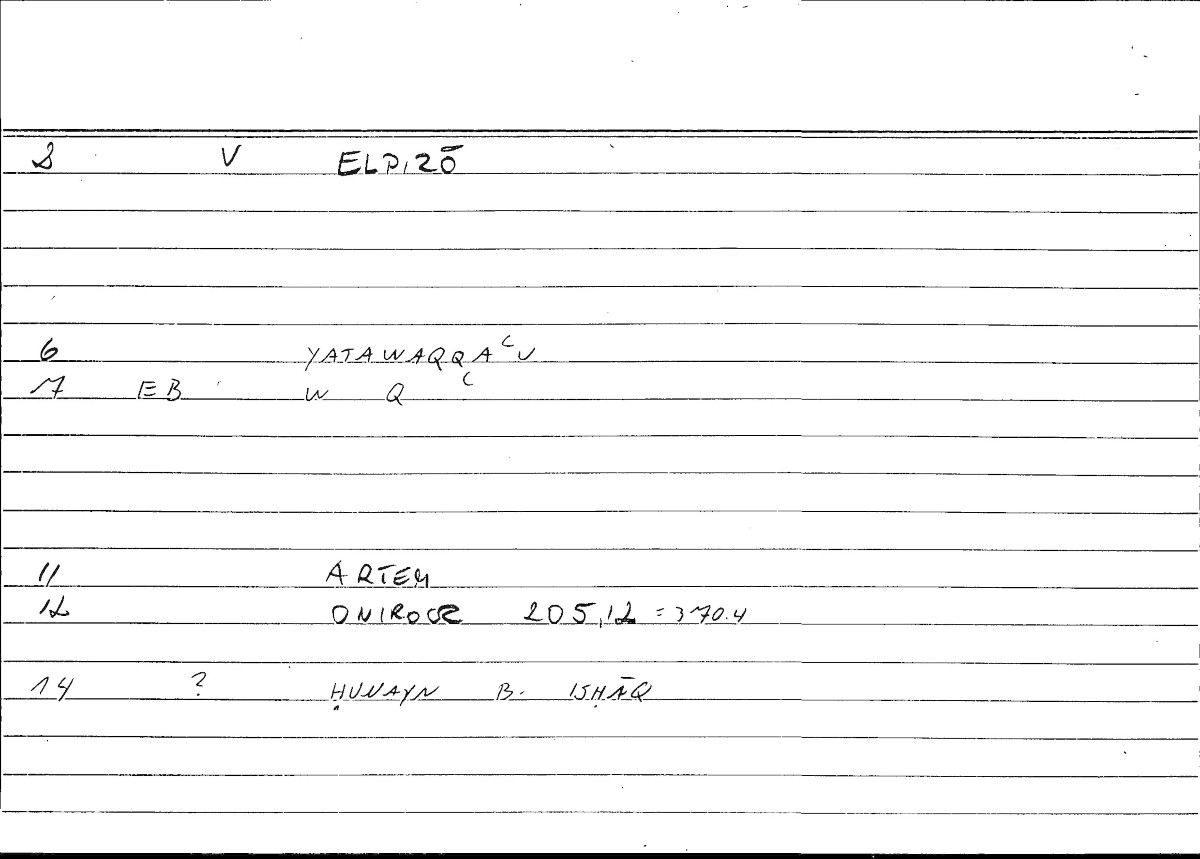 2 V ELPIZŌ
6 YATAWAQQAʿU
7 EB W Q ʿ
11 ARTEM
12 ONIROCR 205,12 = 370.4
14 ? ḤUNAYN B. ISḤĀQ